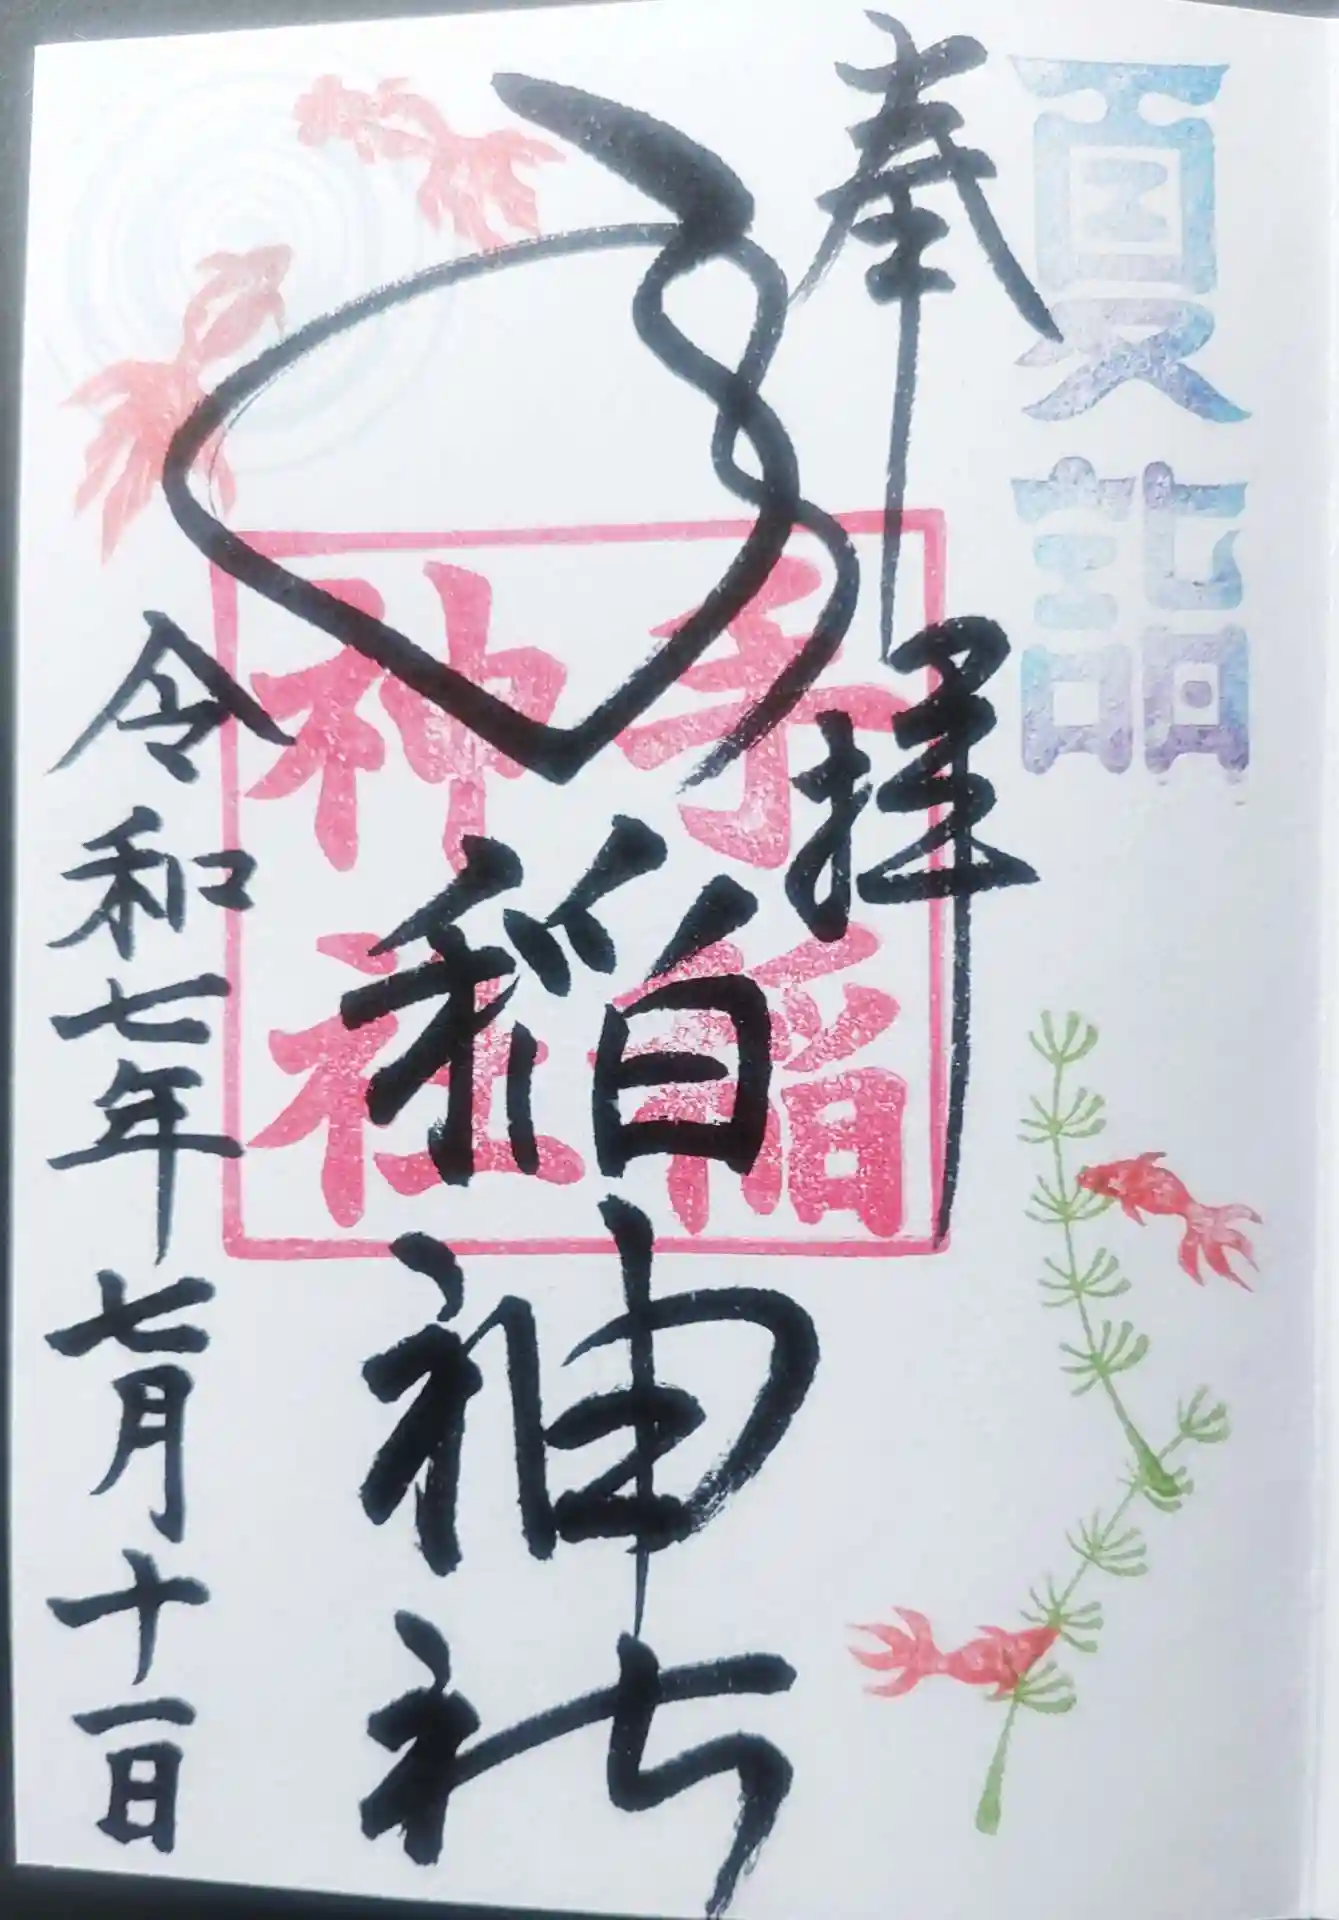 夏詣
奉拝
手稲神社
手稲神社
令和七年七月十一日